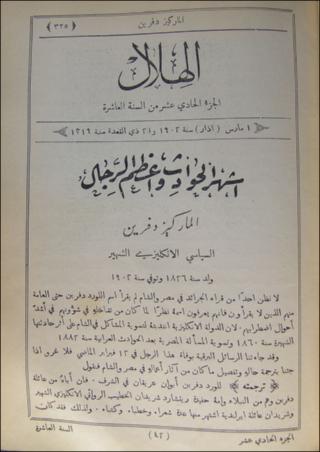 الماركيز دفرين
﴿ ٣٢٥ ﴾
الهلال
الجزء الحادي عشر من السنة العاشرة
١ مارس ( اذار ) سنة ١٩٠٢ و٢١ ذي القعدة سنة ١٣١٩
اشهر الحوادث واعظم الرجال
الماركيز دفرين
السياسي الانكليزي الشهير
ولد سنة ١٨٢٦ وتوفي سنة ١٩٠٢
لا نظن احدًا من قراء الجرائد في مصر والشام لم يقرأ اسم اللورد دفرين حتى العامة
منهم الذين لا يقرأون فانهم يعرفون اسمه نظرًا لما كان من تداخله في شؤونهم في أشد
أحوال اضطرابهم . لان الدولة الانكليزية انتدبته لتسوية المشاكل في الشام على أثر حادثتها
الشهيرة سنة ١٨٦٠ وتسوية المسألة المصرية بعد الحوادث العرابية سنة ١٨٨٢
وقد جاءتنا الرسائل البرقية بوفاة هذا الرجل في ١٢ فبراير الماضي فلا غرو اذا
جئنا بترجمة حاله وتفصيل ما كان من آثار أعماله في مصر والشام فنقول
﴿ ترجمته ﴾ للورد دفرين أبوان عريقان في الشرف . فان أباه من عائلة
دفرين وهم من النبلاء وامه حفيدة ريتشارد شريدان الخطيب الروائي الانكليزي الشهير
وشريدان عائلة ايرلندية اشتهر منها عدة شعراء وخطباء وكتاب . ولذلك فقد كان
الجزء الحادي عشر
( ٤٢ )
السنة العاشرة